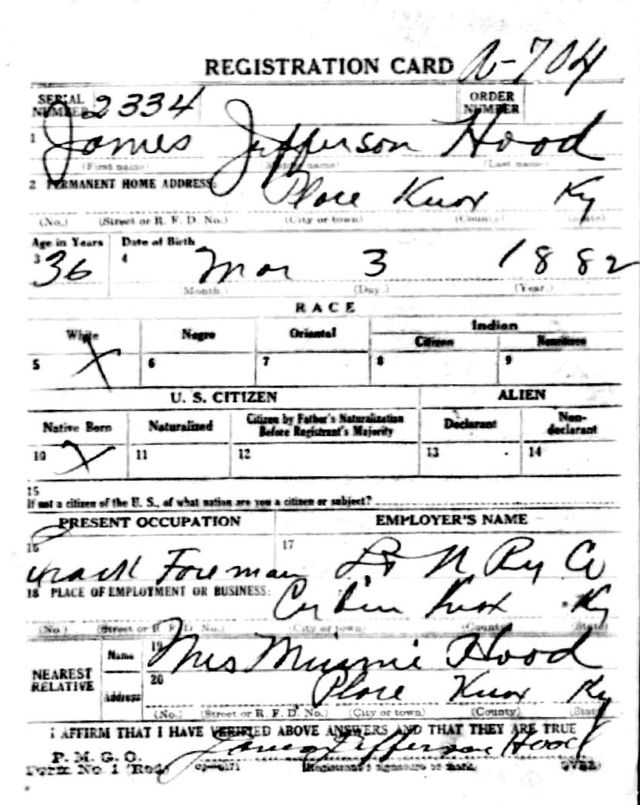 REGISTRATION CARD A-704
SERIAL NUMBER 2334 ORDER NUMBER
1 James Jefferson Hood
(First name) (Middle name) (Last name)
2 PERMANENT HOME ADDRESS:
Place Knox Ky
(No.) (Street or R. F. D. No.) (City or town) (County) (State)
Age in Years Date of Birth
3 36 4 Mar 3 1882
(Month.) (Day.) (Year.)
RACE
White Negro Oriental Indian
Citizen Noncitizen
5 X 6 7 8 9
U. S. CITIZEN ALIEN
Native Born Naturalized Citizen by Father's Naturalization Before Registrant's Majority Declarant Non-declarant
10 X 11 12 13 14
15
If not a citizen of the U. S., of what nation are you a citizen or subject?
PRESENT OCCUPATION EMPLOYER'S NAME
16 17
Track Foreman L & N Ry Co
18 PLACE OF EMPLOYMENT OR BUSINESS:
Corbin Knox Ky
(No.) (Street or R. F. D. No.) (City or town) (County) (State)
NEAREST RELATIVE
Name 19 Mrs Minnie Hood
Address 20 Place Knox Ky
(No.) (Street or R. F. D. No.) (City or town) (County) (State)
I AFFIRM THAT I HAVE VERIFIED ABOVE ANSWERS AND THAT THEY ARE TRUE
P. M. G. O. James Jefferson Hood
Form No. 1 (Red) (Registrant's signature or mark) (OVER)